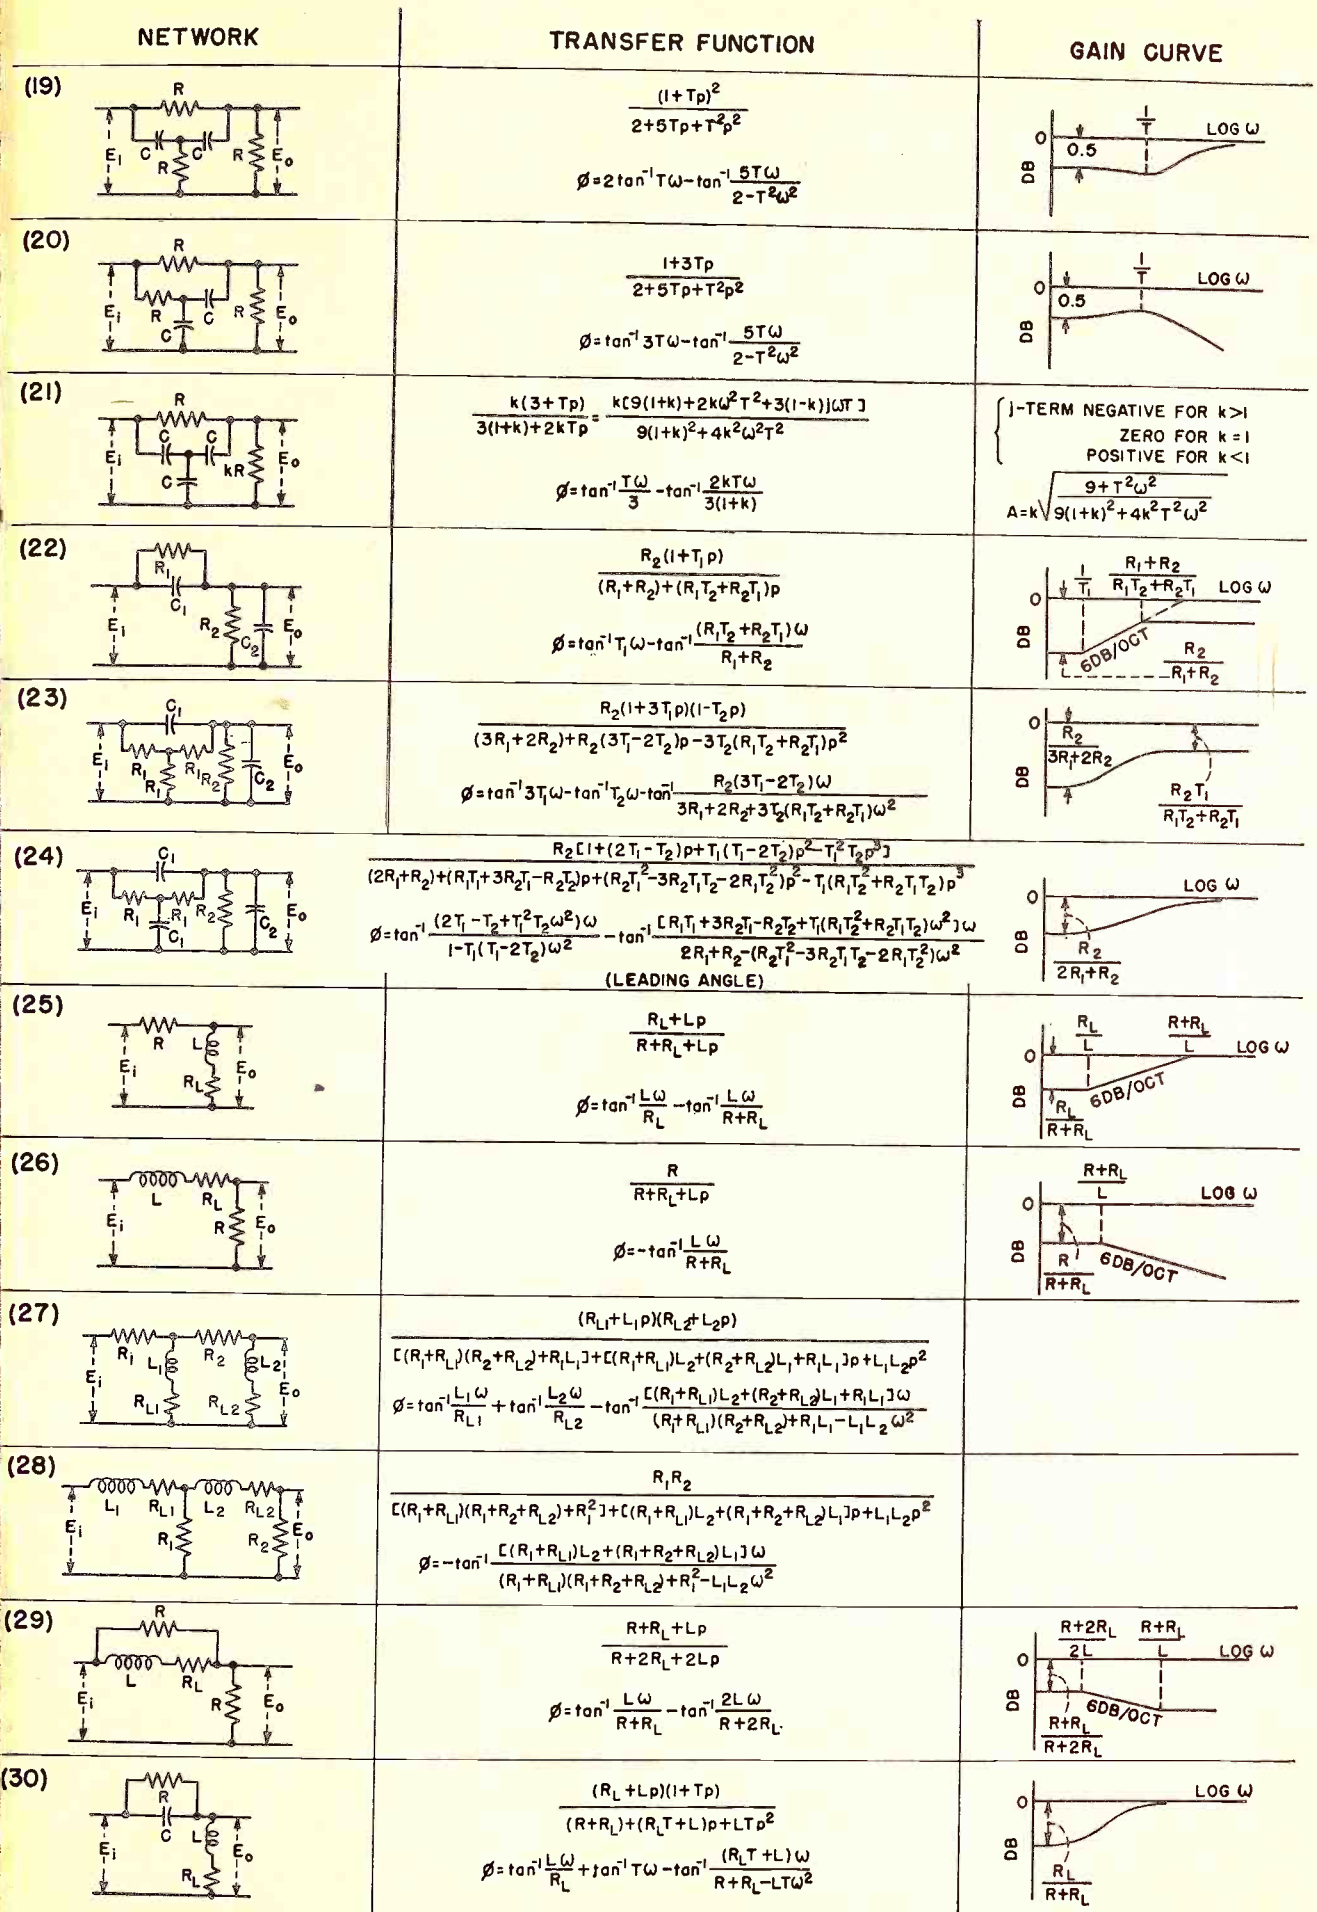 NETWORK TRANSFER FUNCTION GAIN CURVE
(19)
R
E₁ C C R R E₀
(1+Tp)²
2+5Tp+T²p²
Ø=2tan⁻¹Tω-tan⁻¹ 5Tω
2-T²ω²
1
T
LOG ω
0
0.5
DB
(20)
R
Eᵢ R C C R E₀
1+3Tp
2+5Tp+T²p²
Ø=tan⁻¹3Tω-tan⁻¹ 5Tω
2-T²ω²
1
T
LOG ω
0
0.5
DB
(21)
R
Eᵢ C C C kR E₀
k(3+Tp) = k[9(1+k)+2kω²T²+3(1-k)jωT]
3(1+k)+2kTp 9(1+k)²+4k²ω²T²
Ø=tan⁻¹ Tω - tan⁻¹ 2kTω
3 3(1+k)
j-TERM NEGATIVE FOR k>1
ZERO FOR k=1
POSITIVE FOR k<1
A=k√ 9+T²ω²
9(1+k)²+4k²T²ω²
(22)
R₁
C₁
E₁ R₂ C₂ E₀
R₂(1+T₁p)
(R₁+R₂)+(R₁T₂+R₂T₁)p
Ø=tan⁻¹T₁ω-tan⁻¹ (R₁T₂+R₂T₁)ω
R₁+R₂
1 R₁+R₂
T₁ R₁T₂+R₂T₁ LOG ω
0
DB
6DB/OCT
R₂
R₁+R₂
(23)
C₁
Eᵢ R₁ R₁ R₁ R₂ C₂ E₀
R₂(1+3T₁p)(1-T₂p)
(3R₁+2R₂)+R₂(3T₁-2T₂)p-3T₂(R₁T₂+R₂T₁)p²
Ø=tan⁻¹3T₁ω-tan⁻¹T₂ω-tan⁻¹ R₂(3T₁-2T₂)ω
3R₁+2R₂+3T₂(R₁T₂+R₂T₁)ω²
0
DB
R₂
3R₁+2R₂
R₂T₁
R₁T₂+R₂T₁
(24)
C₁
Eᵢ R₁ R₁ C₁ R₂ C₂ E₀
R₂[1+(2T₁-T₂)p+T₁(T₁-2T₂)p²-T₁²T₂p³]
(2R₁+R₂)+(R₁T₁+3R₂T₁-R₂T₂)p+(R₂T₁²-3R₂T₁T₂-2R₁T₂²)p²-T₁(R₁T₂²+R₂T₁T₂)p³
Ø=tan⁻¹ (2T₁-T₂+T₁²T₂ω²)ω - tan⁻¹ [R₁T₁+3R₂T₁-R₂T₂+T₁(R₁T₂²+R₂T₁T₂)ω²]ω
1-T₁(T₁-2T₂)ω² 2R₁+R₂-(R₂T₁²-3R₂T₁T₂-2R₁T₂²)ω²
(LEADING ANGLE)
LOG ω
0
DB
R₂
2R₁+R₂
(25)
R L
Eᵢ R_L E₀
R_L+Lp
R+R_L+Lp
Ø=tan⁻¹ Lω - tan⁻¹ Lω
R_L R+R_L
R_L R+R_L
L L LOG ω
0
DB
6DB/OCT
R_L
R+R_L
(26)
L R_L
Eᵢ R E₀
R
R+R_L+Lp
Ø=-tan⁻¹ Lω
R+R_L
R+R_L
L LOG ω
0
DB
R
R+R_L
6DB/OCT
(27)
R₁ L₁ R₂ L₂
Eᵢ R_L1 R_L2 E₀
(R_L1+L₁p)(R_L2+L₂p)
[(R₁+R_L1)(R₂+R_L2)+R₁L₁]+[(R₁+R_L1)L₂+(R₂+R_L2)L₁+R₁L₁]p+L₁L₂p²
Ø=tan⁻¹ L₁ω + tan⁻¹ L₂ω - tan⁻¹ [(R₁+R_L1)L₂+(R₂+R_L2)L₁+R₁L₁]ω
R_L1 R_L2 (R₁+R_L1)(R₂+R_L2)+R₁L₁-L₁L₂ω²
(28)
L₁ R_L1 L₂ R_L2
Eᵢ R₁ R₂ E₀
R₁R₂
[(R₁+R_L1)(R₁+R₂+R_L2)+R₁²]+[(R₁+R_L1)L₂+(R₁+R₂+R_L2)L₁]p+L₁L₂p²
Ø=-tan⁻¹ [(R₁+R_L1)L₂+(R₁+R₂+R_L2)L₁]ω
(R₁+R_L1)(R₁+R₂+R_L2)+R₁²-L₁L₂ω²
(29)
R
L R_L
Eᵢ R E₀
R+R_L+Lp
R+2R_L+2Lp
Ø=tan⁻¹ Lω - tan⁻¹ 2Lω
R+R_L R+2R_L.
R+2R_L R+R_L
2L L LOG ω
0
DB
6DB/OCT
R+R_L
R+2R_L
(30)
R
C L
Eᵢ R_L E₀
(R_L+Lp)(1+Tp)
(R+R_L)+(R_LT+L)p+LTp²
Ø=tan⁻¹ Lω + tan⁻¹Tω - tan⁻¹ (R_LT+L)ω
R_L R+R_L-LTω²
LOG ω
0
DB
R_L
R+R_L